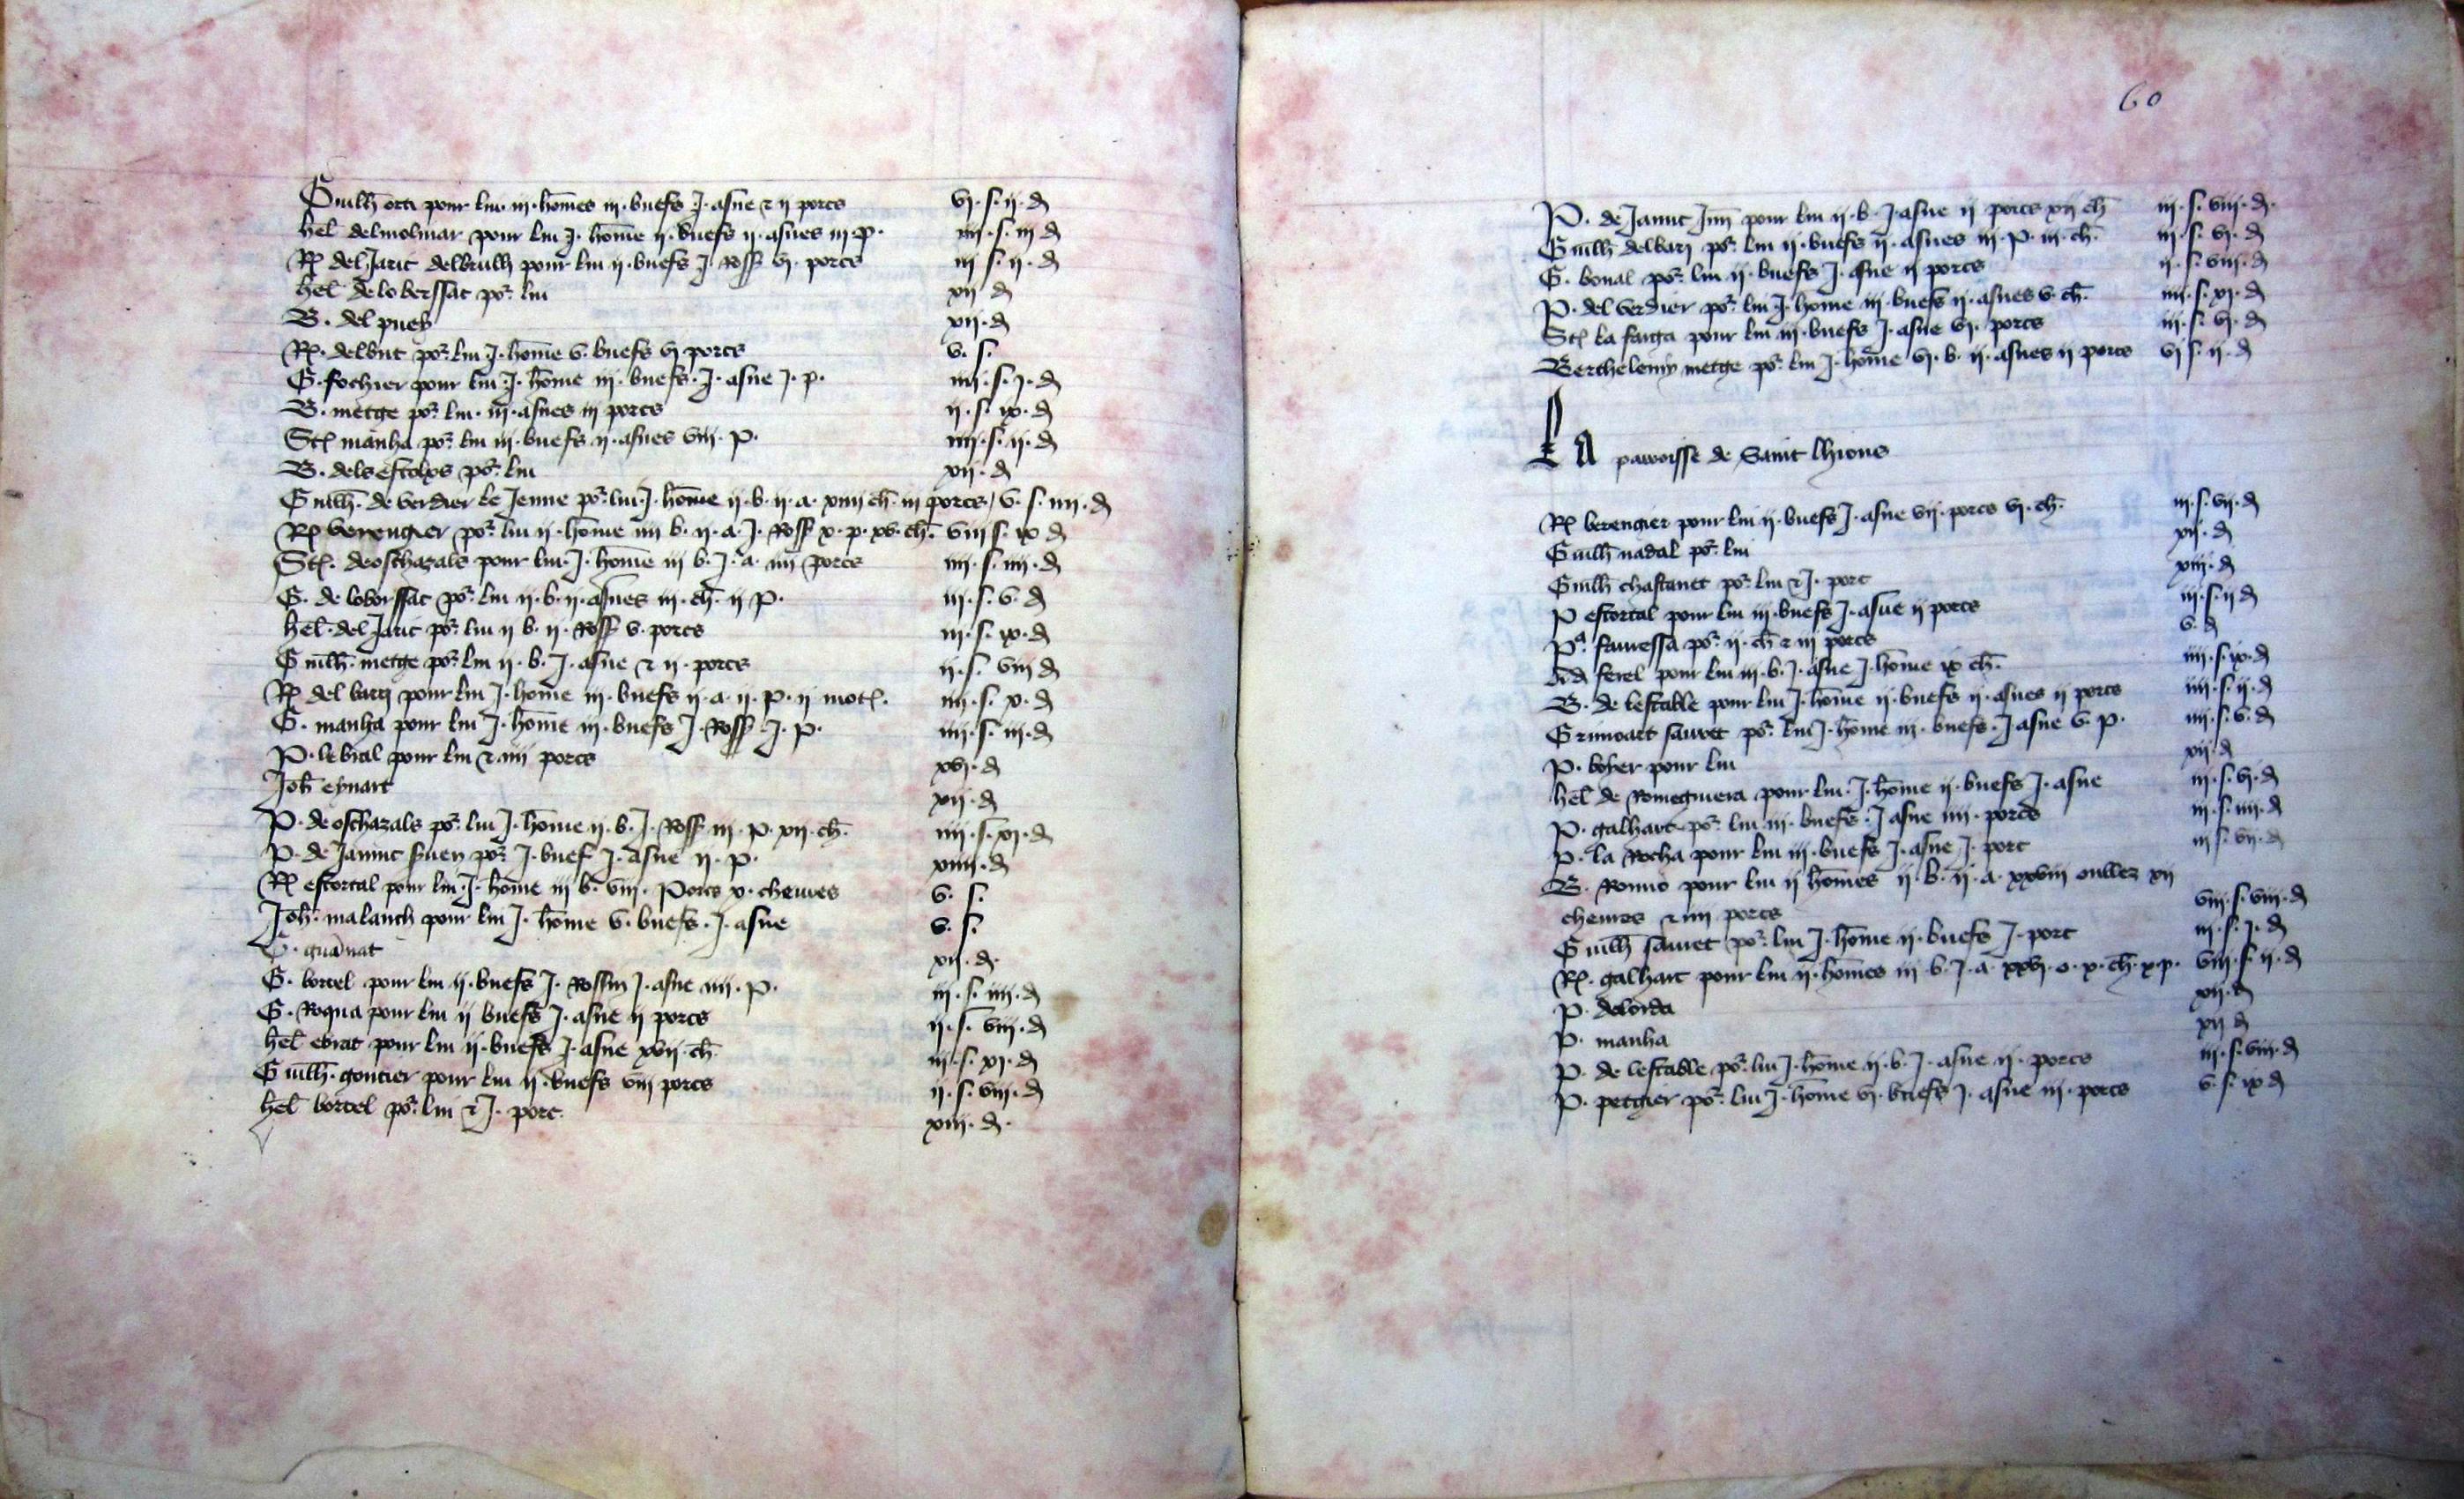 Guilh orti pour lui iii homes iii buefs I asne & ii porcs vi s ii d
hel delmolinar pour lui I home ii buefs ii asnes iii p iiii s iii d
R delJaric delbrulh pour lui ii buefs I Ross vi porcs iii s ii d
hel de loberssac por lui xii d
B del pueh xii d
R delbut por lui I home v buefs vi porcs v s
G fochier pour lui I home iii buefs I asne I p iiii s I d
B metge por lui iii asnes iii porcs ii s ix d
Ste manha por lui iii buefs ii asnes viii p iiii s ii d
B dels estolps por lui xii d
Guilh de verdier le Jenne por lui I home ii b ii a xiiii ch iii porcs v s iiii d
R berengier por lui ii home iiii b ii a I Ross x p xv ch viii s ix d
Ste deoschazals pour lui I home iii b I a iiii porcs iiii s iiii d
G de loborssac por lui ii b ii asnes iii ch ii p iii s v d
hel delJaric por lui ii b ii Ross v porcs iii s ix d
Guilh metge por lui ii b I asne & ii porcs ii s viii d
R del barri pour lui I home iii buefs ii a ii p ii mot iiii s x d
G manha pour lui I home iii buefs I Ross I p iiii s iii d
P lebral pour lui & iiii porcs xvi d
Joh eynart xii d
P deoschazals por lui I home ii b I Ross iii p xii ch iiii s xi d
P de Jannic suen por I buef I asne ii p xiiii d
R estortal pour lui I home iii b viii porcs x chevres v s
Joh malanch pour lui I home v buefs I asne v s
G guarnat xii d
G bortel pour lui ii buefs I Rossin I asne iiii p iii s iiii d
G Roqua pour lui ii buefs I asne ii porcs ii s viii d
hel ebrat pour lui ii buefs I asne xvii ch iii s xi d
Guilh gontier pour lui ii buefs viii porcs ii s viii d
hel bortel por lui & I porc xiii d
60
P de Jannic Jnn pour lui ii b I asne ii porcs xii ch iii s viii d
Guilh delbari por lui ii buefs ii asnes iii p iii ch iii s vi d
G bonal por lui ii buefs I asne ii porcs ii s viii d
P del verdier por lui I home iii buefs ii asnes v ch iiii s xi d
Ste la farga pour lui iii buefs I asne vi porcs iii s vi d
Berthelemy metge por lui I home vi b ii asnes ii porcs vi s ii d
La parroisse de Sainct Lhions
R berengier pour lui ii buefs I asne vii porcs vi ch iii s vii d
Guilh nadal por lui xii d
Guilh chastanet por lui & I porc xiii d
P estortal pour lui iii buefs I asne ii porcs iii s ii d
Pa fauressa por ii ch & iii porcs v d
Ad ferel pour lui iii b I asne I home ix ch iiii s ix d
B de lestable pour lui I home ii buefs ii asnes ii porcs iiii s ii d
Grimoart sauvet por lui I home iii buefs I asne v p iiii s v d
P boyer pour lui xii d
hel de Romeguiera pour lui I home ii buefs I asne iii s vi d
P galhart por lui iii buefs I asne iiii porcs iii s iiii d
P la Rocha pour lui iii buefs I asne I porc iii s vii d
B Romio pour lui ii homes ii b ii a xxviii oulles xii
chevres & iiii porcs viii s viii d
Guilh sauvet por lui I home ii buefs I porc iii s I d
R galhart pour lui ii homes iii b I a xxvi o x ch x p viii s ii d
P delorda xii d
P manha xii d
P de lestable por lui I home ii b I asne ii porcs iii s viii d
P petgier por lui I home vi buefs I asne iii porcs v s ix d